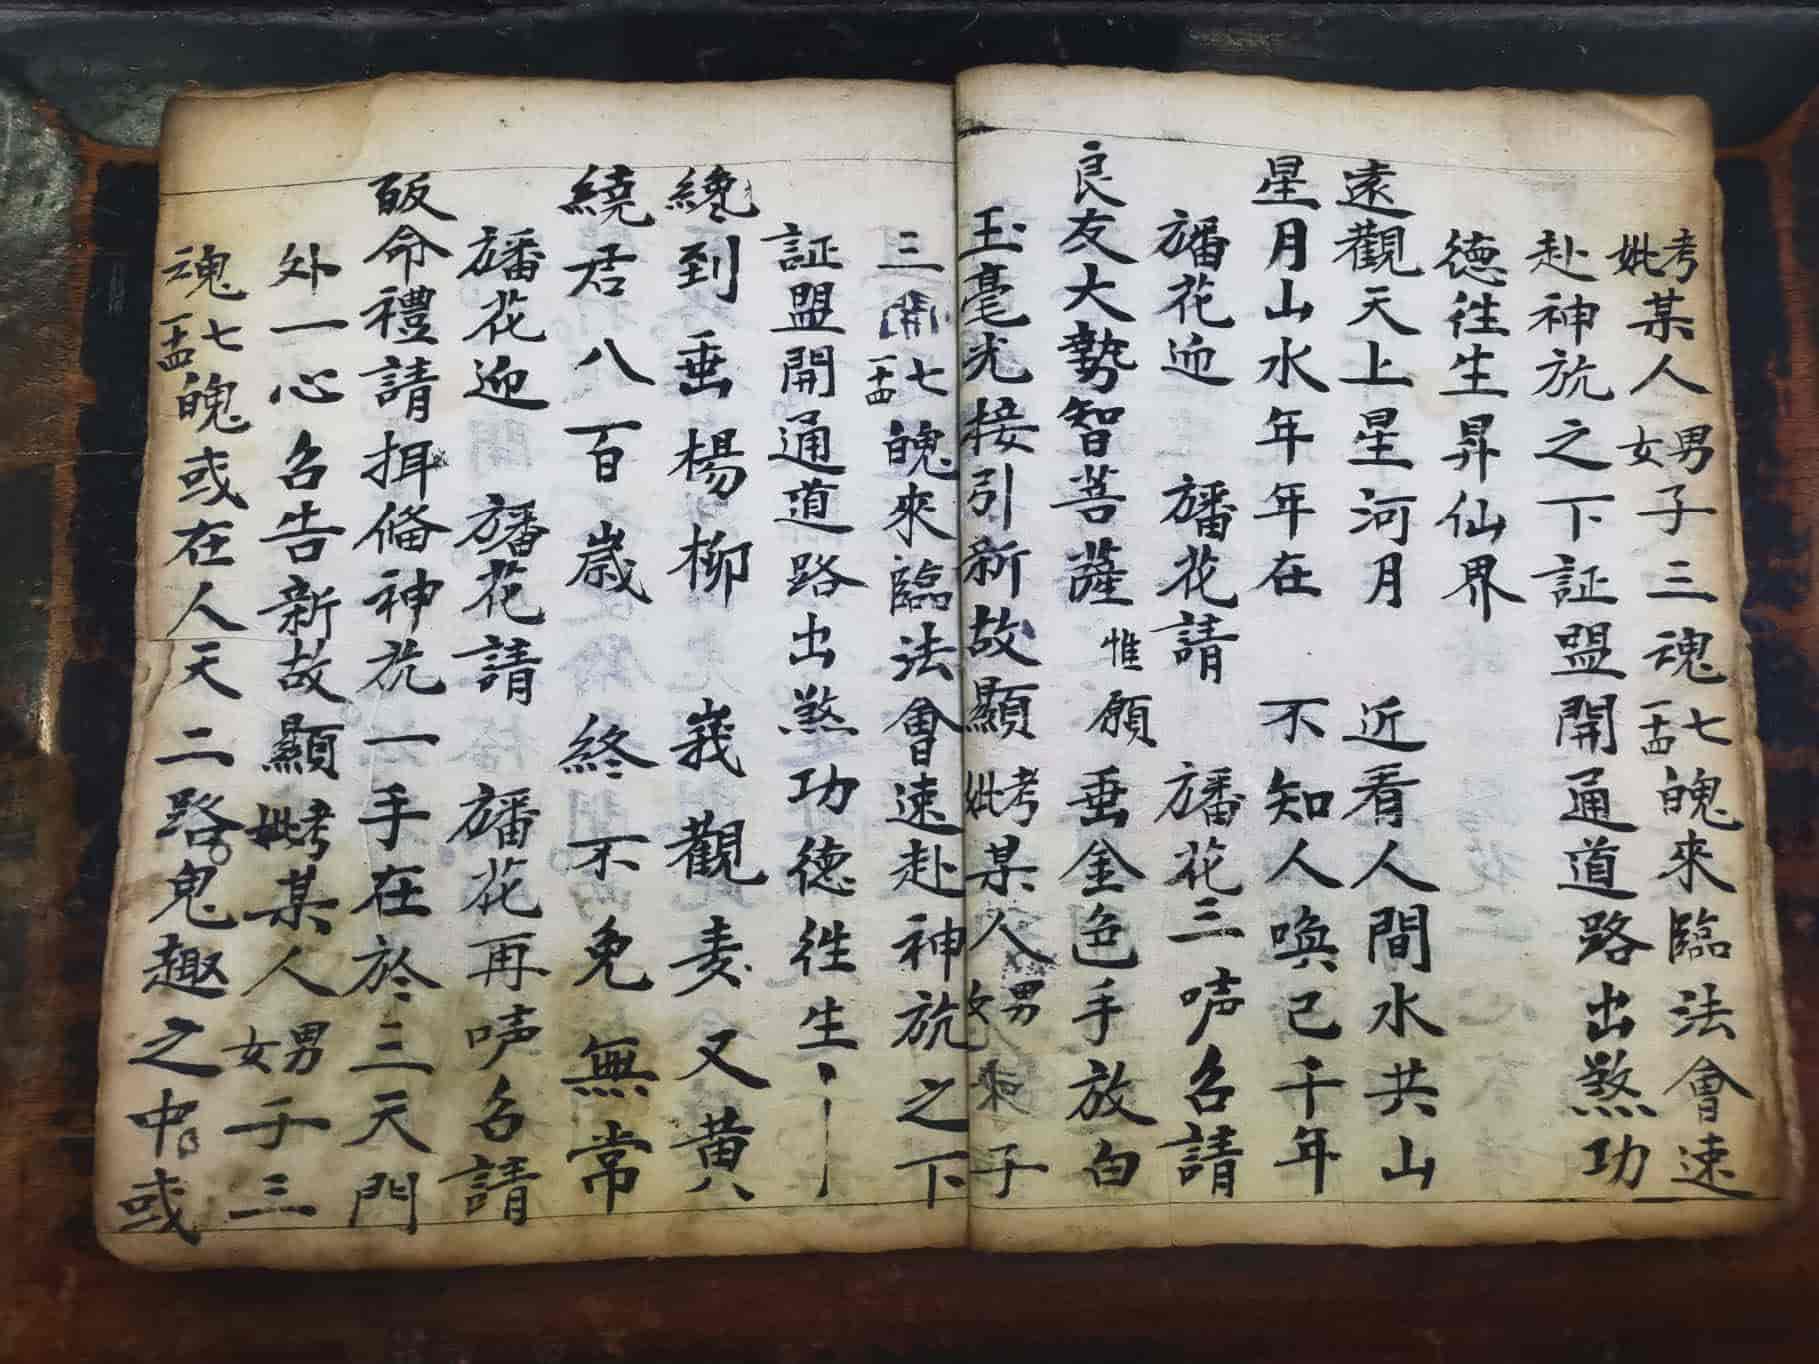 考妣某人男女子三魂七十四魄來臨法會速
赴神旊之下証盟開通道路出煞功
德徃生昇仙界
遠觀天上星河月 近看人間水共山
星月山水年年在 不知人喚已千年
旛花迎 旛花請 旛花三唥名請
良友大勢智菩薩惟願垂金色手放白
玉毫光接引新故顯考妣某人男女子
三魂七十四魄來臨法會速赴神旊之下
証盟開通道路出煞功德徃生
纔到垂楊柳 峩觀麦又黄
繞君八百嵗 終不免無常
旛花迎 旛花請 旛花再唥名請
皈命禮請揖偹神旊一手在於三天門
外一心名告新故顯考妣某人男女子三
魂七十四魄或在人天二路鬼趣之中或